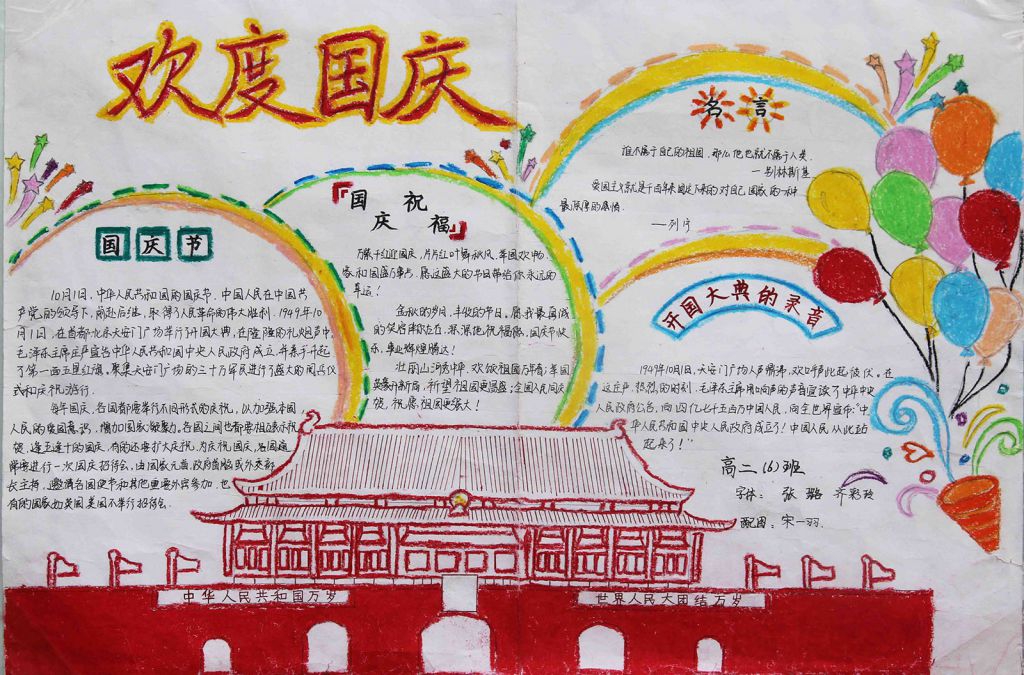 欢度国庆
国庆节
10月1日,中华人民共和国的国庆节,中国人民在中国共
产党的领导下,前赴后继,取得了人民革命的伟大胜利。1949年10
月1日,在首都北京天安门广场举行了开国大典,在隆隆的礼炮声中,
毛泽东主席庄严宣告中华人民共和国中央人民政府成立,并亲手升起
了第一面五星红旗。聚集天安门广场的三十万军民进行了盛大的阅兵仪
式和庆祝游行。
每年国庆,各国都要举行不同形式的庆祝,以加强本国
人民的爱国意识,增加国家凝聚力。各国之间也都要相互表示祝
贺,逢五逢十的国庆,有的还要扩大庆祝,为庆祝国庆,各国通
常要进行一次国庆招待会,由国家元首、政府首脑或外交部
长主持,邀请各国使节和其他重要外宾参加,也
有的国家如美国、英国不举行招待会。
国庆
祝福
万紫千红迎国庆,片片红叶舞秋风,举国欢畅
家和国盛万事兴,愿这盛大的节日带给你永远的
幸运!
金秋的岁月,丰收的节日。愿我最真诚
的笑容串联左右,深深地祝福你,国庆节快
乐,事业辉煌腾达!
壮丽山河秀中,欢饮祖国万年春;举国
祈望祖国更昌盛;全国人民同庆
贺,祝愿祖国更强大!
名言
谁不属于自己的祖国,那么他也就不属于人类。
—别林斯基
爱国主义就是千百年来固定下来的对自己国家的一种
最深厚的感情。
——列宁
开国大典的录音
1949年10月1日,天安门广场人声鼎沸,欢呼声此起彼伏。在
这庄严、热烈的时刻,毛泽东主席用响亮的声音宣读了中华中央
人民政府公告,向四亿七千五百万中国人民,向全世界宣布:“中
华人民共和国中央人民政府成立了!中国人民从此站
起来了!”
高二(6)班
字体: 张璐 齐彩玲
配图:宋一羽.
中华人民共和国万岁
世界人民大团结万岁